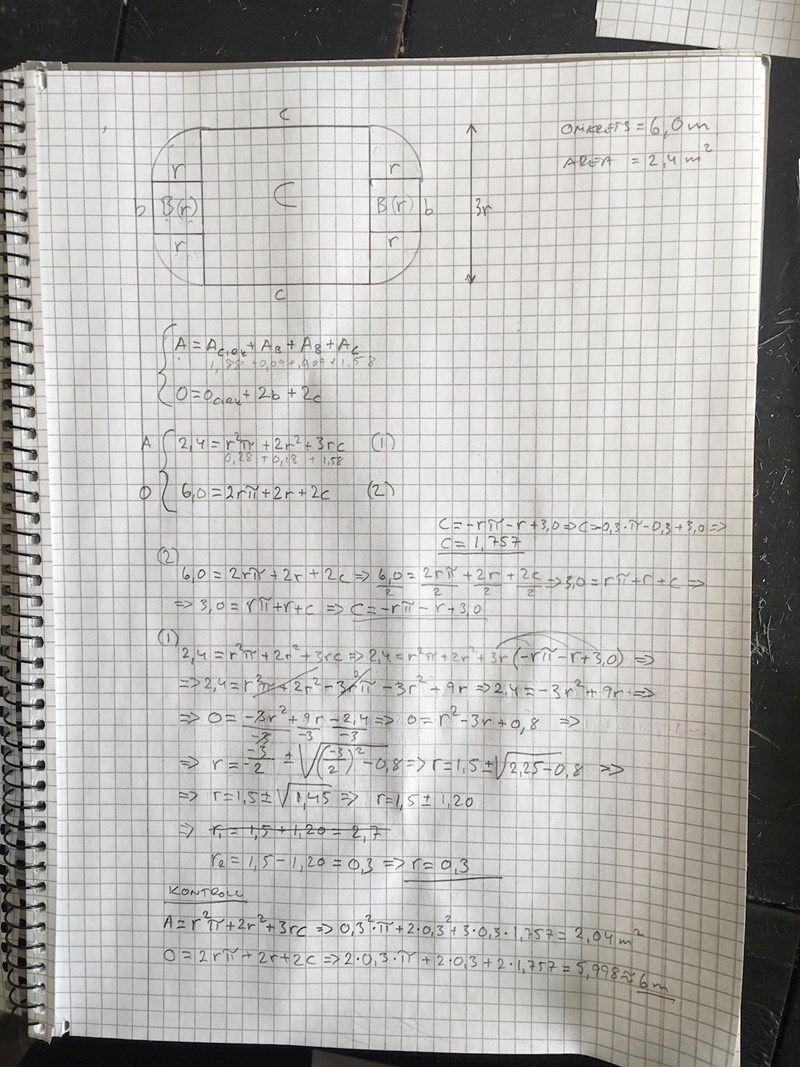 C
OMKRETS = 6,0 m
AREA = 2,4 m²
r r
b B(r) C B(r) b 3r
r r
C
A = A_cirk + A_B + A_B + A_C
1,88 + 0,09 + 0,09 + 1,58
O = O_cirk + 2b + 2c
A 2,4 = r²π + 2r² + 3rc (1)
0,28 + 0,18 + 1,58
O 6,0 = 2rπ + 2r + 2c (2)
C = -rπ - r + 3,0 ⇒ C = -0,3·π - 0,3 + 3,0 ⇒
C = 1,757
(2)
6,0 = 2rπ + 2r + 2c ⇒ 6,0/2 = 2rπ/2 + 2r/2 + 2c/2 ⇒ 3,0 = rπ + r + c ⇒
⇒ 3,0 = rπ + r + c ⇒ C = -rπ - r + 3,0
(1)
2,4 = r²π + 2r² + 3rc ⇒ 2,4 = r²π + 2r² + 3r(-rπ - r + 3,0) ⇒
⇒ 2,4 = r²π + 2r² - 3r²π - 3r² + 9r ⇒ 2,4 = -3r² + 9r ⇒
⇒ 0 = -3r²/-3 + 9r/-3 - 2,4/-3 ⇒ 0 = r² - 3r + 0,8 ⇒
⇒ r = -3/-2 ± √((-3/2)² - 0,8) ⇒ r = 1,5 ± √(2,25 - 0,8) ⇒
⇒ r = 1,5 ± √1,45 ⇒ r = 1,5 ± 1,20
⇒ r₁ = 1,5 + 1,20 = 2,7
r₂ = 1,5 - 1,20 = 0,3 ⇒ r = 0,3
KONTROLL
A = r²π + 2r² + 3rc ⇒ 0,3²·π + 2·0,3² + 3·0,3·1,757 = 2,04 m²
O = 2rπ + 2r + 2c ⇒ 2·0,3·π + 2·0,3 + 2·1,757 = 5,998 ≈ 6 m